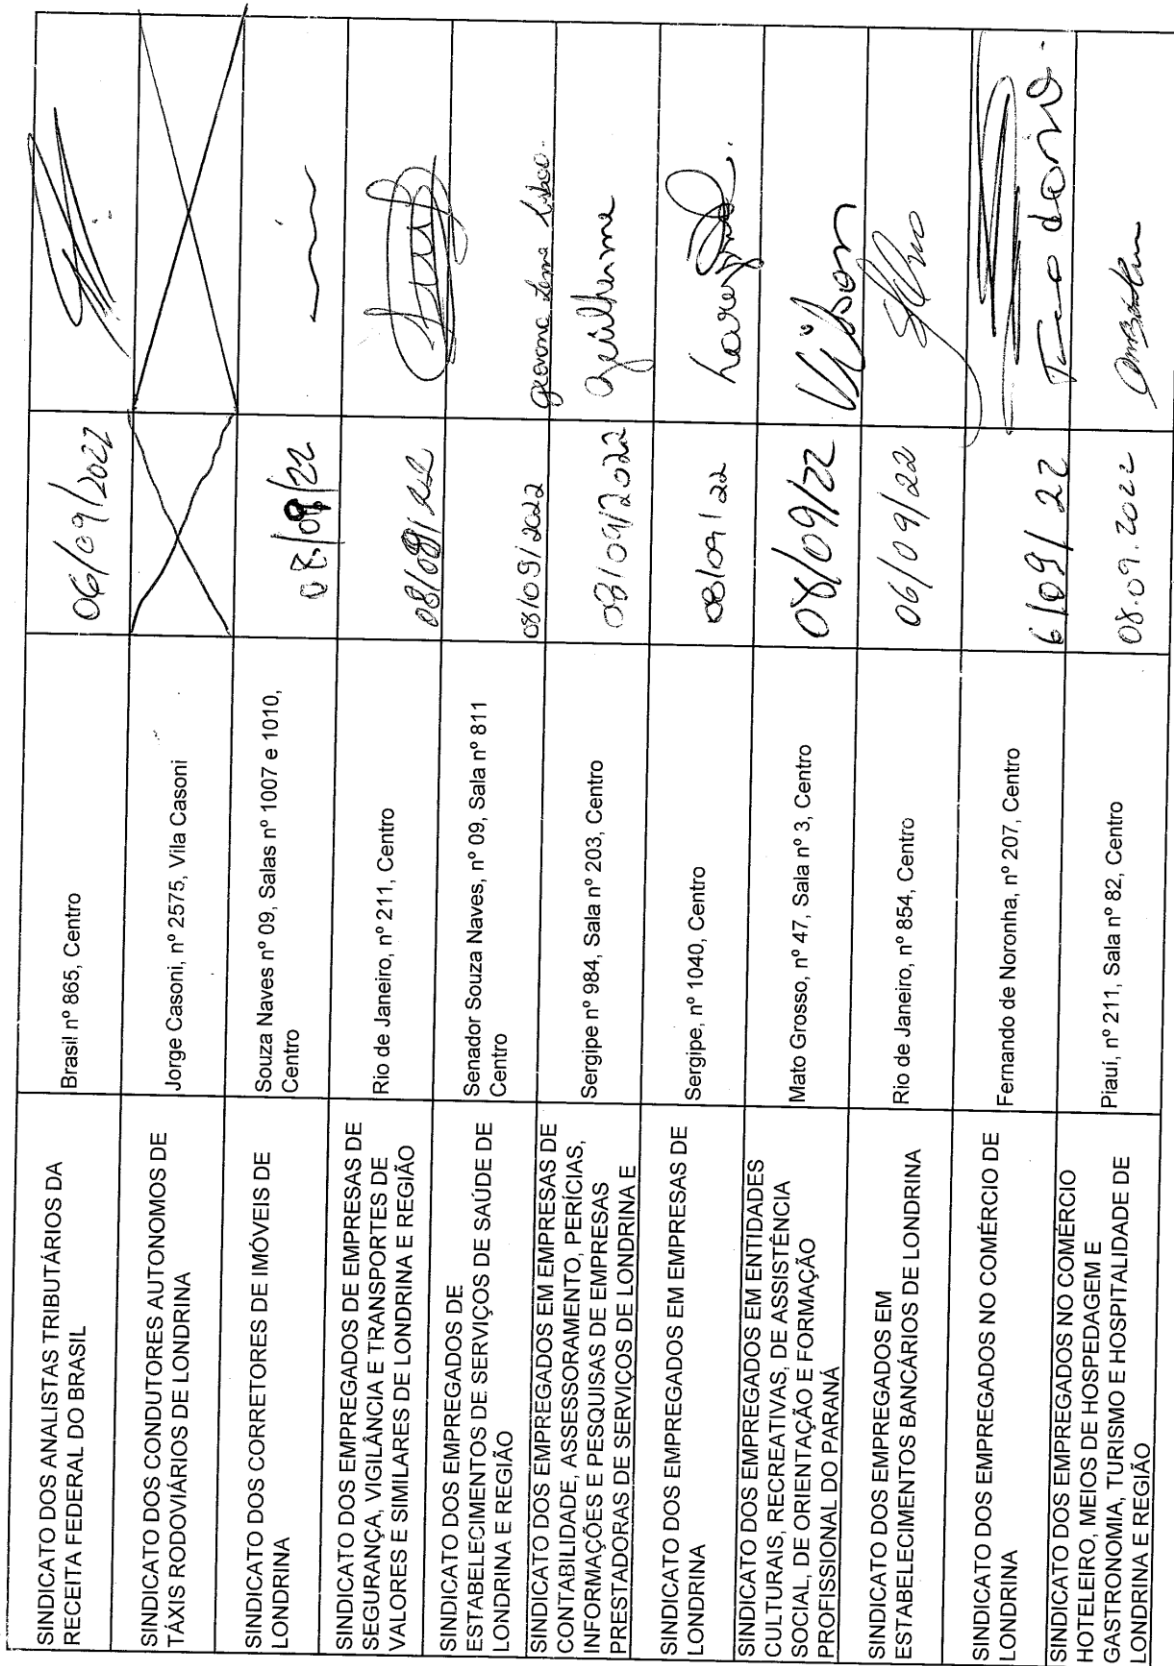 SINDICATO DOS ANALISTAS TRIBUTÁRIOS DA
RECEITA FEDERAL DO BRASIL
Brasil nº 865, Centro
06/09/2022
SINDICATO DOS CONDUTORES AUTONOMOS DE
TÁXIS RODOVIÁRIOS DE LONDRINA
Jorge Casoni, nº 2575, Vila Casoni
SINDICATO DOS CORRETORES DE IMÓVEIS DE
LONDRINA
Souza Naves nº 09, Salas nº 1007 e 1010,
Centro
08/09/22
SINDICATO DOS EMPREGADOS DE EMPRESAS DE
SEGURANÇA, VIGILÂNCIA E TRANSPORTES DE
VALORES E SIMILARES DE LONDRINA E REGIÃO
Rio de Janeiro, nº 211, Centro
08/09/22
SINDICATO DOS EMPREGADOS DE
ESTABELECIMENTOS DE SERVIÇOS DE SAÚDE DE
LONDRINA E REGIÃO
Senador Souza Naves, nº 09, Sala nº 811
Centro
08/09/2022
SINDICATO DOS EMPREGADOS EM EMPRESAS DE
CONTABILIDADE, ASSESSORAMENTO, PERÍCIAS,
INFORMAÇÕES E PESQUISAS DE EMPRESAS
PRESTADORAS DE SERVIÇOS DE LONDRINA E
Sergipe nº 984, Sala nº 203, Centro
08/09/2022
Guilherme
SINDICATO DOS EMPREGADOS EM EMPRESAS DE
LONDRINA
Sergipe, nº 1040, Centro
08/09/22
SINDICATO DOS EMPREGADOS EM ENTIDADES
CULTURAIS, RECREATIVAS, DE ASSISTÊNCIA
SOCIAL, DE ORIENTAÇÃO E FORMAÇÃO
PROFISSIONAL DO PARANÁ
Mato Grosso, nº 47, Sala nº 3, Centro
08/09/22
SINDICATO DOS EMPREGADOS EM
ESTABELECIMENTOS BANCÁRIOS DE LONDRINA
Rio de Janeiro, nº 854, Centro
06/09/22
SINDICATO DOS EMPREGADOS NO COMÉRCIO DE
LONDRINA
Fernando de Noronha, nº 207, Centro
6/09/22
SINDICATO DOS EMPREGADOS NO COMÉRCIO
HOTELEIRO, MEIOS DE HOSPEDAGEM E
GASTRONOMIA, TURISMO E HOSPITALIDADE DE
LONDRINA E REGIÃO
Piauí, nº 211, Sala nº 82, Centro
08.09.2022